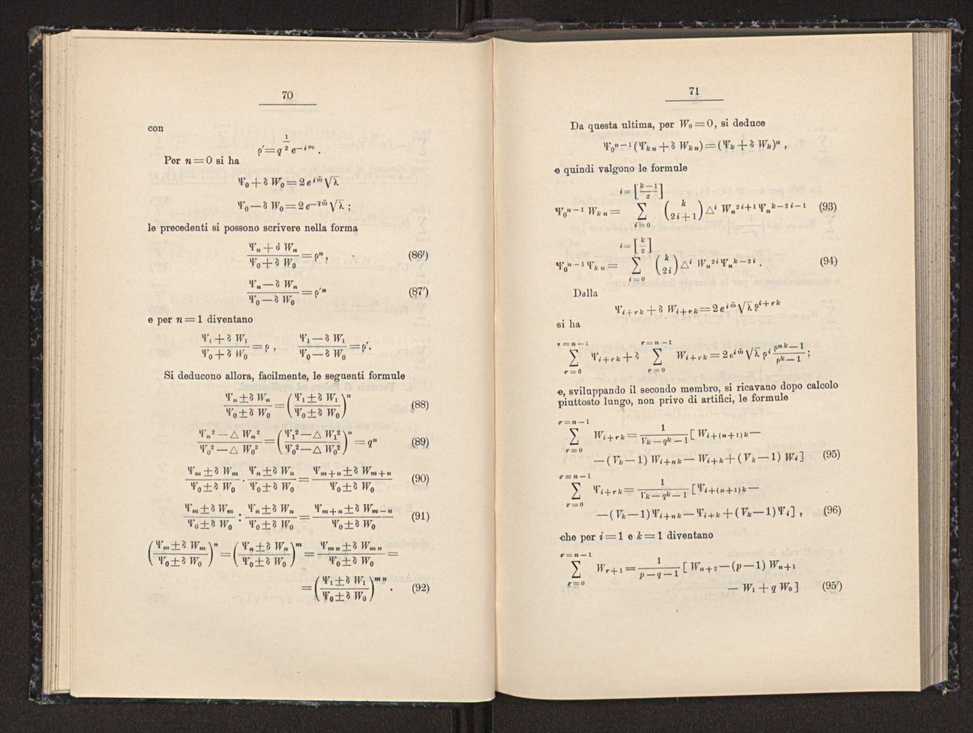 70
con
ρ′ = q^{1/2} e^{-iω} .
Per n = 0 si ha
Ψ₀ + δ W₀ = 2 e^{iω̄} √λ
Ψ₀ — δ W₀ = 2 e^{-iω̄} √λ ;
le precedenti si possono scrivere nella forma
(Ψₙ + δ Wₙ)/(Ψ₀ + δ W₀) = ρⁿ, (86′)
(Ψₙ — δ Wₙ)/(Ψ₀ — δ W₀) = ρ′ⁿ (87′)
e per n = 1 diventano
(Ψ₁ + δ W₁)/(Ψ₀ + δ W₀) = ρ , (Ψ₁ — δ W₁)/(Ψ₀ — δ W₀) = ρ′.
Si deducono allora, facilmente, le seguenti formule
(Ψₙ ± δ Wₙ)/(Ψ₀ ± δ W₀) = ((Ψ₁ ± δ W₁)/(Ψ₀ ± δ W₀))ⁿ (88)
(Ψₙ² — △ Wₙ²)/(Ψ₀² — △ W₀²) = ((Ψ₁² — △ W₁²)/(Ψ₀² — △ W₀²))ⁿ = qⁿ (89)
(Ψₘ ± δ Wₘ)/(Ψ₀ ± δ W₀) · (Ψₙ ± δ Wₙ)/(Ψ₀ ± δ W₀) = (Ψ_{m+n} ± δ W_{m+n})/(Ψ₀ ± δ W₀) (90)
(Ψₘ ± δ Wₘ)/(Ψ₀ ± δ W₀) : (Ψₙ ± δ Wₙ)/(Ψ₀ ± δ W₀) = (Ψ_{m+n} ± δ W_{m-n})/(Ψ₀ ± δ W₀) (91)
((Ψₘ ± δ Wₘ)/(Ψ₀ ± δ W₀))ⁿ = ((Ψₙ ± δ Wₙ)/(Ψ₀ ± δ W₀))ᵐ = (Ψ_{mn} ± δ W_{mn})/(Ψ₀ ± δ W₀) =
= ((Ψ₁ ± δ W₁)/(Ψ₀ ± δ W₀))^{mn} . (92)
71
Da questa ultima, per W₀ = 0, si deduce
Ψ₀^{n-1} (Ψ_{kn} + δ W_{kn}) = (Ψₖ + δ Wₖ)ⁿ ,
e quindi valgono le formule
Ψ₀^{n-1} W_{kn} = ∑_{i=0}^{i=[(k-1)/2]} (k / 2i+1) △^i Wₙ^{2i+1} Ψₙ^{k-2i-1} (93)
Ψ₀^{n-1} Ψ_{kn} = ∑_{i=0}^{i=[k/2]} (k / 2i) △^i Wₙ^{2i} Ψₙ^{k-2i} . (94)
Dalla
Ψ_{i+rk} + δ W_{i+rk} = 2 e^{iω̄} √λ ρ^{i+rk}
si ha
∑_{r=0}^{r=n-1} Ψ_{i+rk} + δ ∑_{r=0}^{r=n-1} W_{i+rk} = 2 e^{iω̄} √λ ρ^i (ρ^{nk} — 1)/(ρ^k — 1) ;
e, sviluppando il secondo membro, si ricavano dopo calcolo
piuttosto lungo, non privo di artifici, le formule
∑_{r=0}^{r=n-1} W_{i+rk} = 1/(Vₖ — q^k — 1) [ W_{i+(n+1)k} —
— (Vₖ — 1) W_{i+nk} — W_{i+k} + (Vₖ — 1) Wᵢ ] (95)
∑_{r=0}^{r=n-1} Ψ_{i+rk} = 1/(Vₖ — q^k — 1) [ Ψ_{i+(n+1)k} —
— (Vₖ — 1) Ψ_{i+nk} — Ψ_{i+k} + (Vₖ — 1) Ψᵢ ] , (96)
che per i = 1 e k = 1 diventano
∑_{r=0}^{r=n-1} W_{r+1} = 1/(p — q — 1) [ W_{n+2} — (p — 1) W_{n+1}
— W₁ + q W₀ ] (95′)